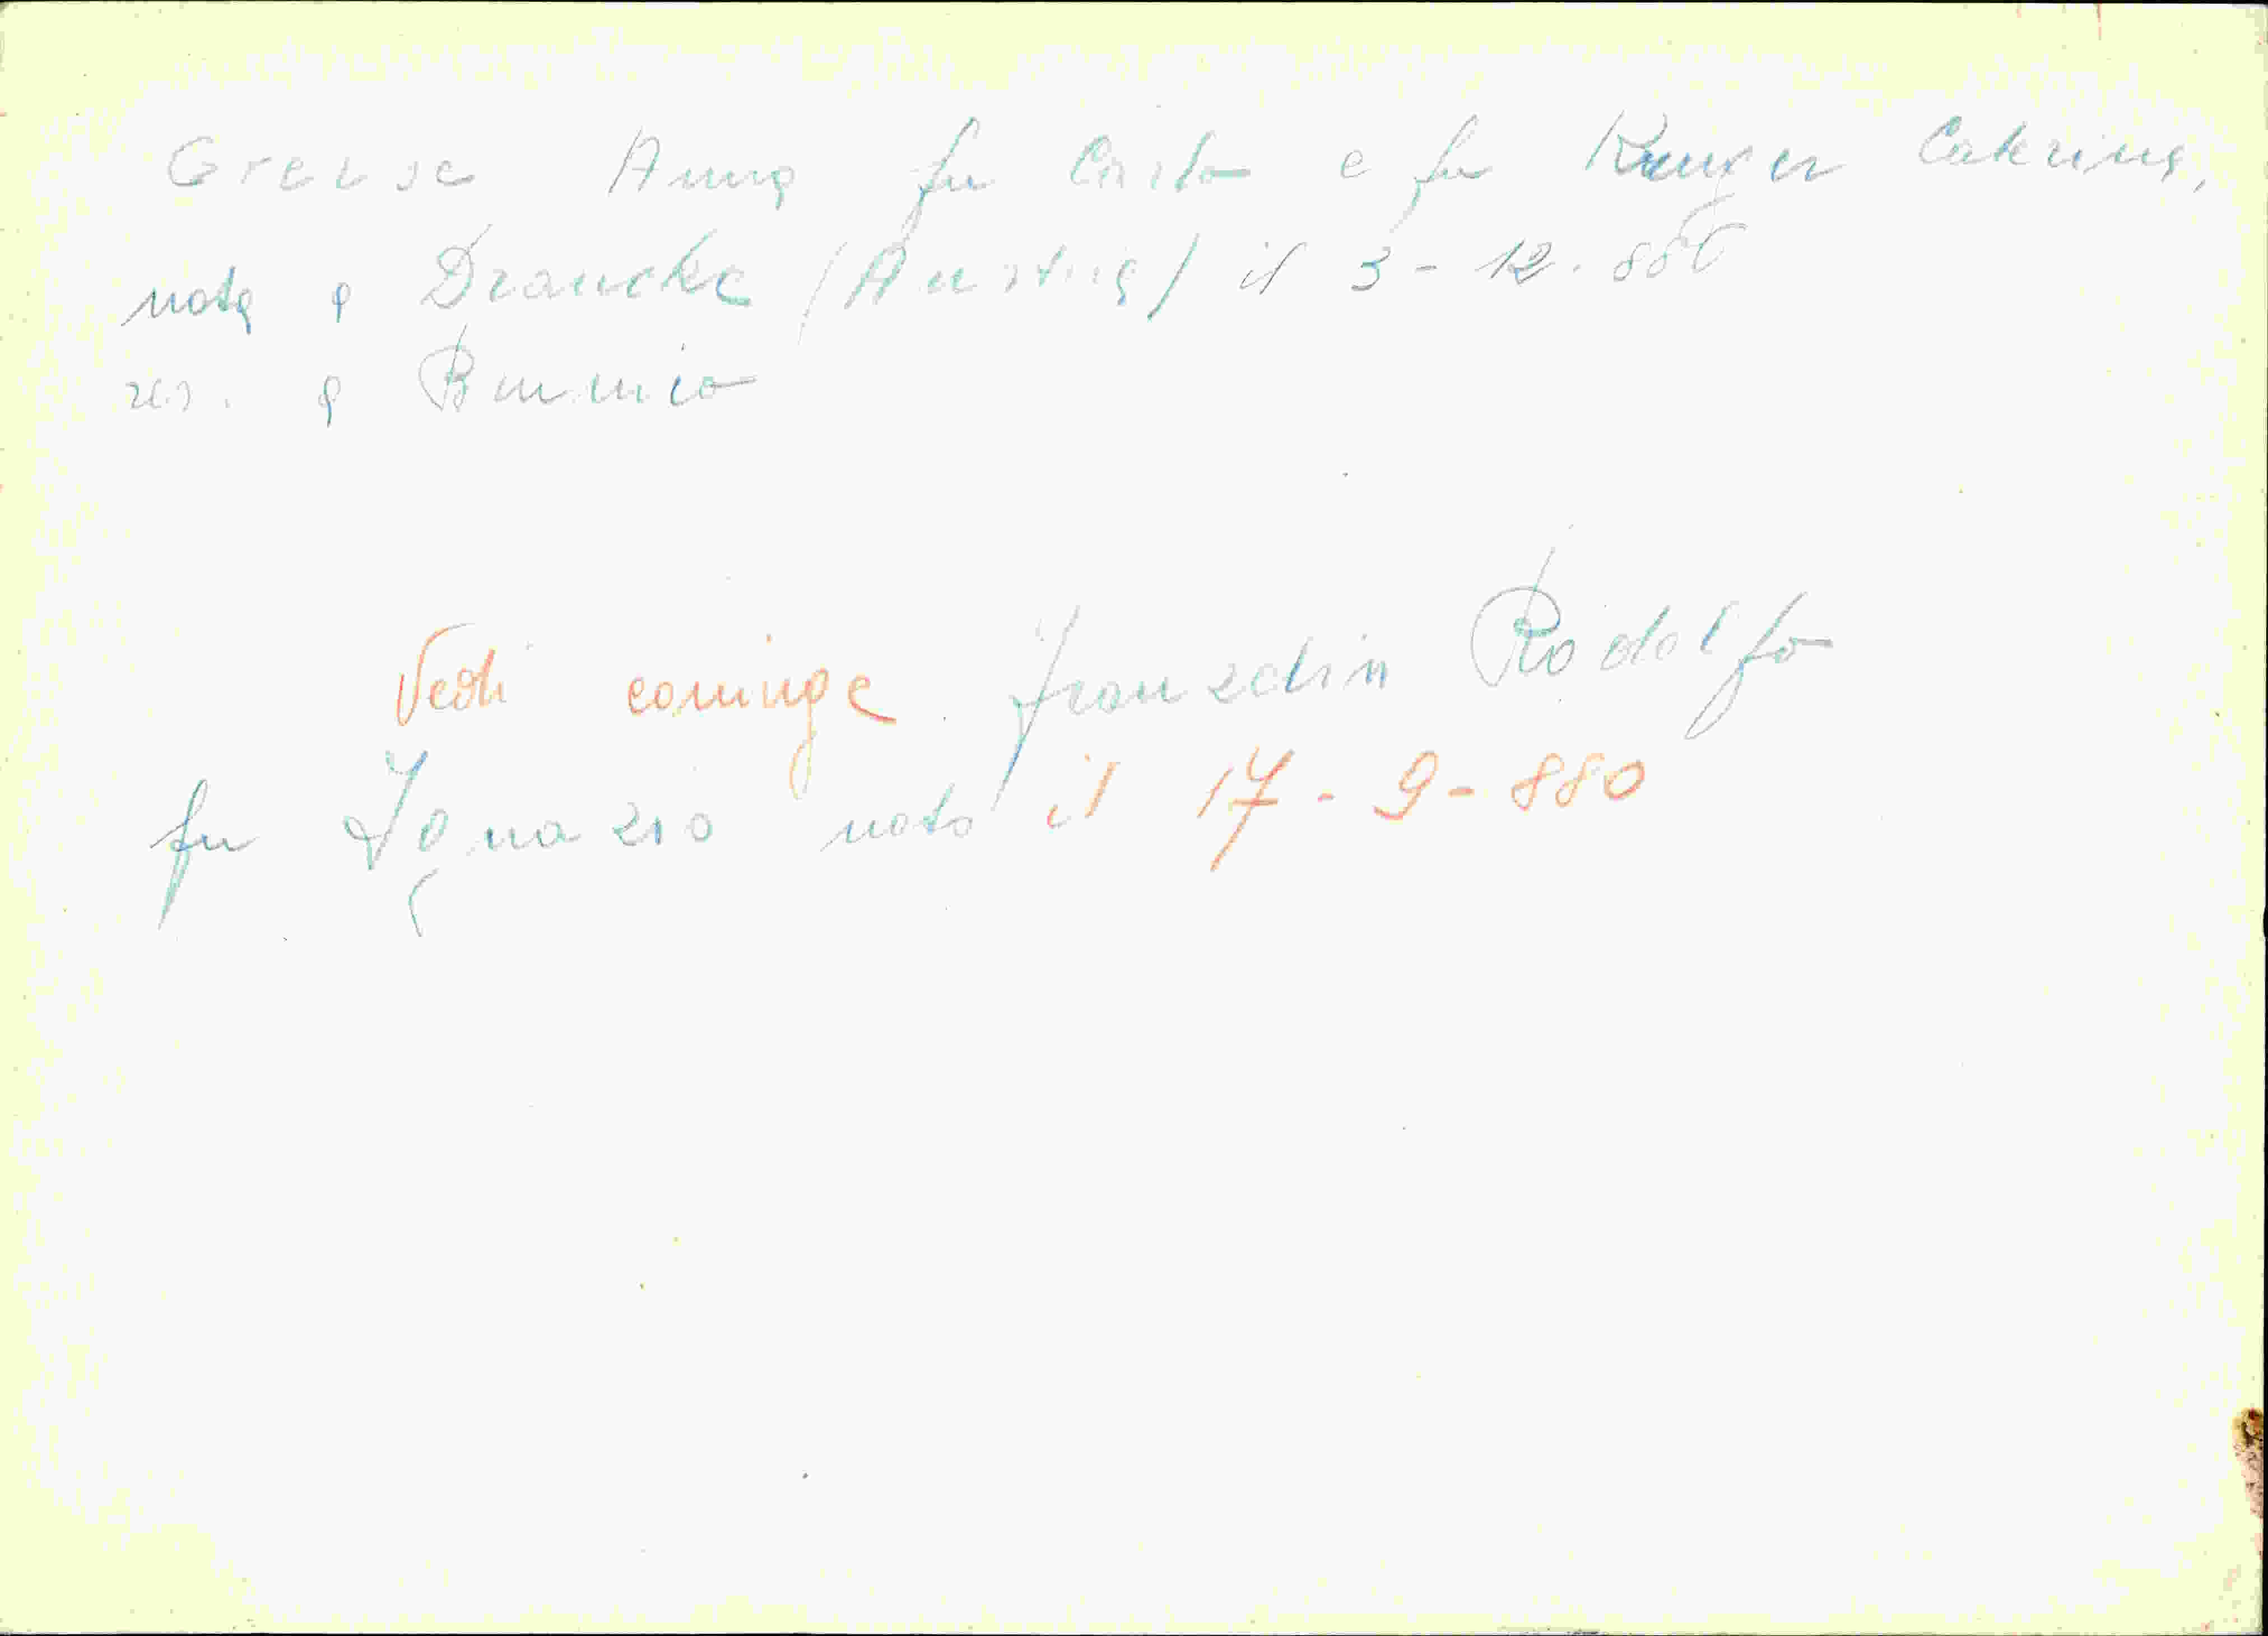 Greuse Anna fu Cristo e fu Caterina,
nata a Drauche (Austria) il 3-12-886
res. a Brunico
Vedi coniuge Franzelin Rodolfo
fu Ignazio nato il 17-9-880